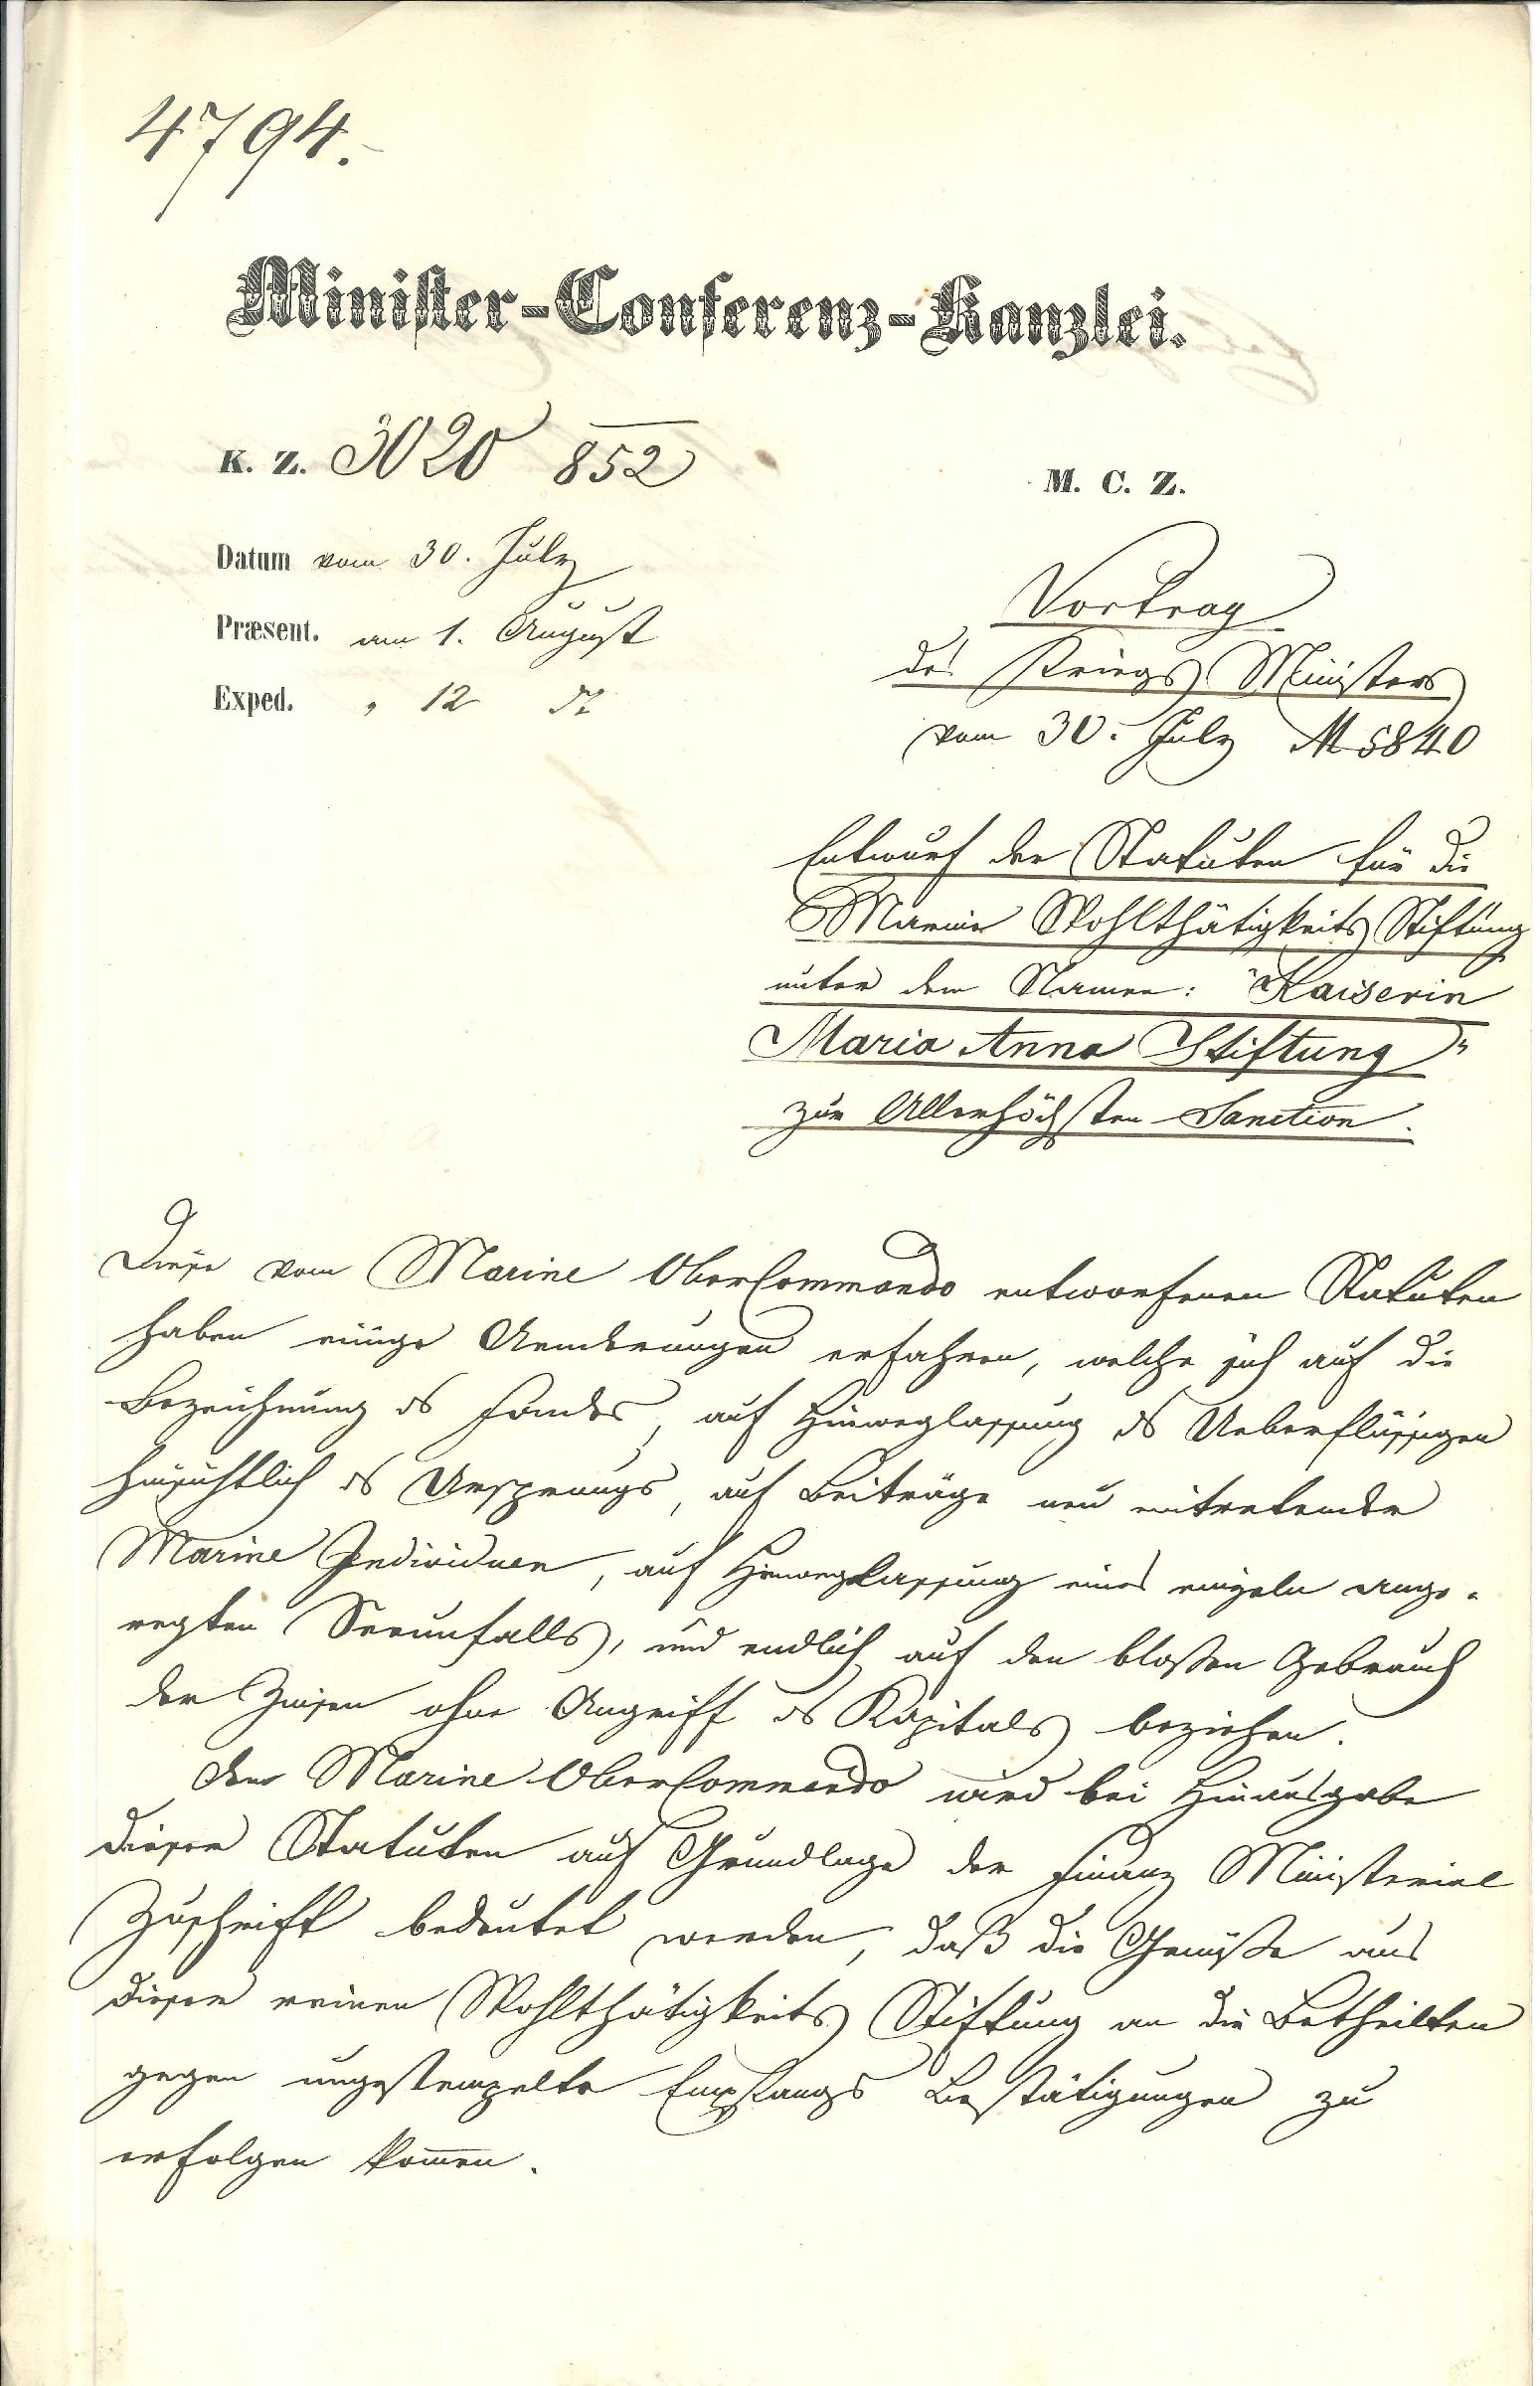 4794.
Minister-Conferenz-Kanzlei.
K. Z. 3020 852
M. C. Z.
Datum vom 30. July
Præsent. am 1. August
Exped. " 12
Vortrag
des Kriegs Ministers
vom 30. July M 5840
Entwurf der Statuten für die
Marine Wohlthätigkeits Stiftung
unter dem Namen: "Kaiserin
Maria Anna Stiftung"
zur Allerhöchsten Sanction.
Diese vom Marine OberCommando entworfenen Statuten
haben einige Aenderungen erfahren, welche sich auf die
Bezeichnung des Fondes, auf Hinweglassung des Ueberflüssigen
hinsichtlich des Ursprungs, auf Beiträge neu eintretender
Marine Individuen, auf Hinweglassung eines einzeln ange-
regten Seeunfalls, und endlich auf den bloßen Gebrauch
der Zinsen ohne Angriff des Kapitals beziehen.
Dem Marine OberCommando wird bei Hinausgabe
dieser Statuten auf Grundlage der Finanz Ministerial
Zuschrift bedeutet werden, daß die Genüße aus
dieser reinen Wohlthätigkeits Stiftung an die Betheilten
gegen ungestempelte Empfangs Bestätigungen zu
erfolgen kommen.